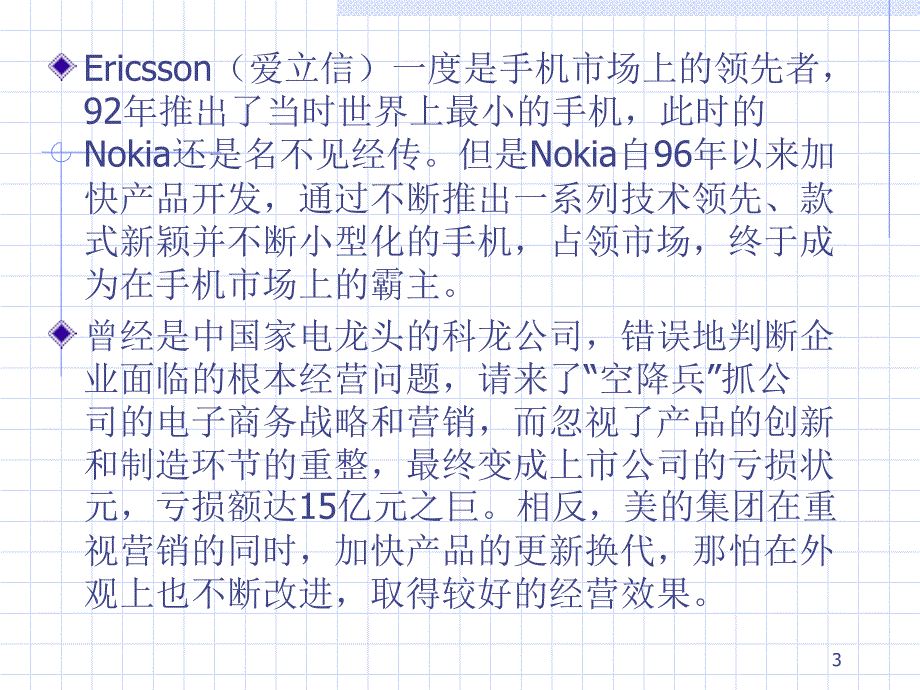 Ericsson（爱立信）一度是手机市场上的领先者，
92年推出了当时世界上最小的手机，此时的
Nokia还是名不见经传。但是Nokia自96年以来加
快产品开发，通过不断推出一系列技术领先、款
式新颖并不断小型化的手机，占领市场，终于成
为在手机市场上的霸主。
曾经是中国家电龙头的科龙公司，错误地判断企
业面临的根本经营问题，请来了“空降兵”抓公
司的电子商务战略和营销，而忽视了产品的创新
和制造环节的重整，最终变成上市公司的亏损状
元，亏损额达15亿元之巨。相反，美的集团在重
视营销的同时，加快产品的更新换代，那怕在外
观上也不断改进，取得较好的经营效果。
3